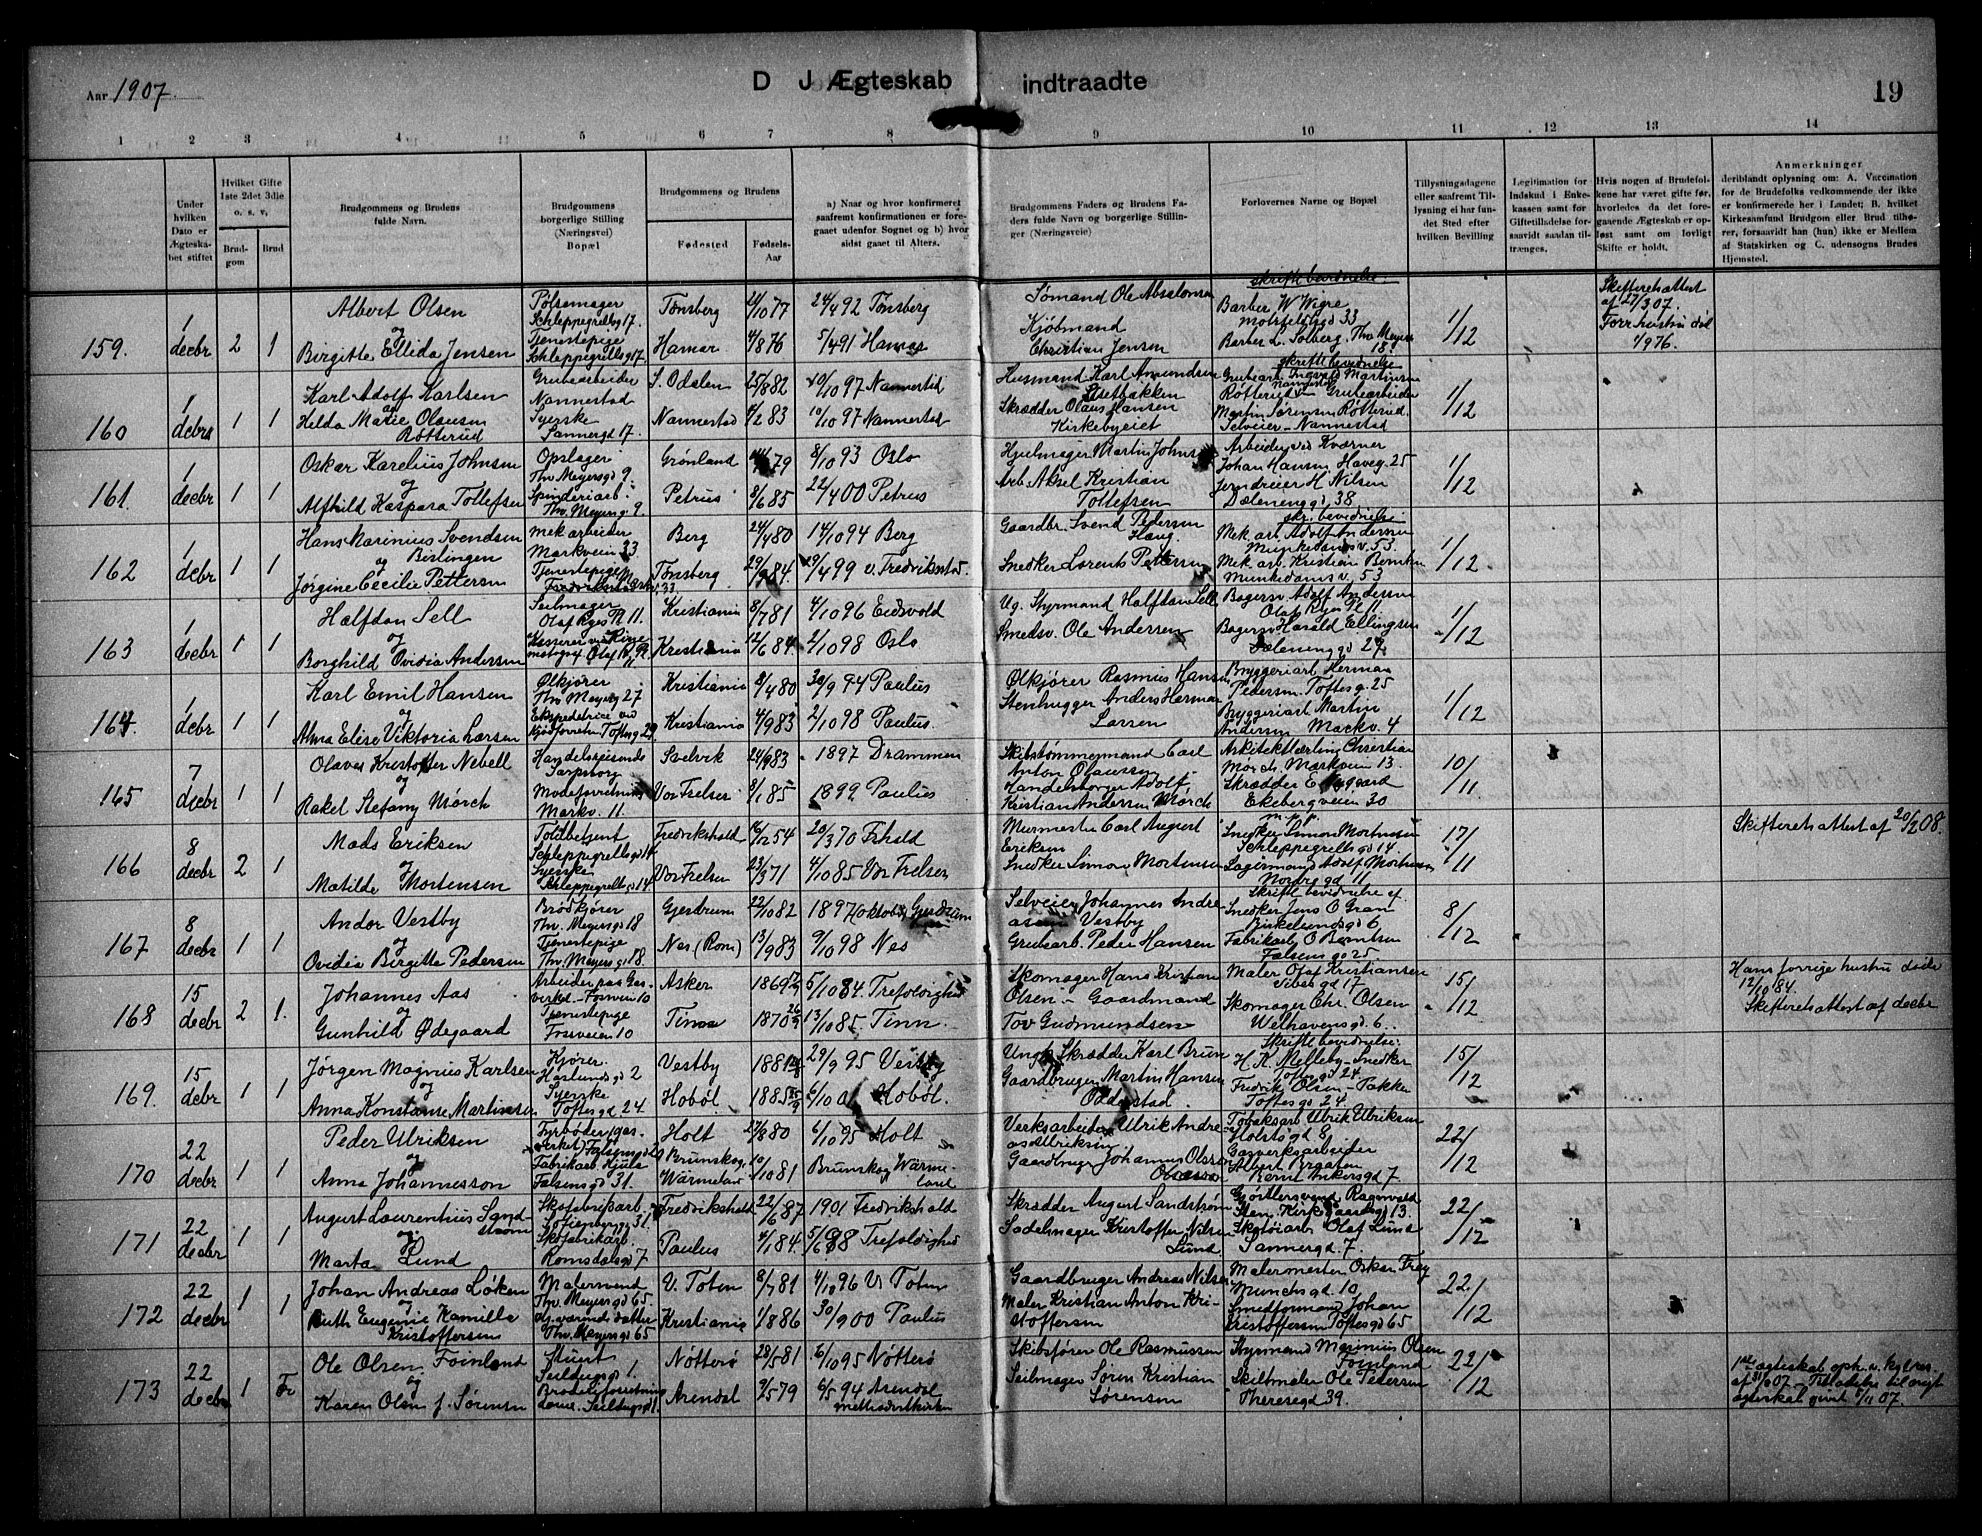 Aar 1907.
D J Ægteskab indtraadte
19
1 2 3 4 5 6 7 8 9 10 11 12 13 14
Under hvilken Dato er Ægteskabet stiftet
Hvilket Gifte 1ste 2det 3dje o. s. v.
Brudgom
Brud
Brudgommens og Brudens fulde Navn.
Brudgommens borgerlige Stilling (Næringsvei) Bopæl
Brudgommens og Brudens
Fødested
Fødsels-Aar
a) Naar og hvor konfirmeret saafremt konfirmationen er foregaaet udenfor Sognet og b) hvor sidst gaaet til Alters.
Brudgommens Faders og Brudens Faders fulde Navn og borgerlige Stillinger (Næringsveie)
Forlovernes Navne og Bopæl
Tillysningsdagene eller saafremt Tillysning ei har fundet Sted efter hvilken Bevilling
Legitimation for Indskud i Enkekassen samt for Giftetilladelse forsaavidt saadan tiltrænges.
Hvis nogen af Brudefolkene har været gifte før, hvorledes da det foregaaende Ægteskab er opløst samt om lovligt Skifte er holdt.
Anmerkninger
deriblandt oplysning om: A. Vaccination for de Brudefolks vedkommende der ikke er konfirmerede her i Landet; B. hvilket Kirkesamfund Brudgom eller Brud tilhører, forsaavidt han (hun) ikke er Medlem af Statskirken og C. udensogns Brudes Hjemsted.
159. 1 decbr 2 1
Albert Olsen
og
Birgitte Ellida Jensen
Pølsemager
Schleppegrellsg 17.
Tjenestepige
Schleppegrellsg 17.
Tønsberg 21/10 77 24/4 92 Tønsberg
Hamar 4/8 76 5/4 91 Hamar
Sømand Ole Absalonsen
Kjøbmand
Christian Jensen
skriftl bevidnelse.
Barber W Wigre
Motzfeldtsgd 33
Barber L. Solberg. Thv Meyers 18.
1/12
Skifteretsattest
af 27/3 07.
Forr hustru død
1/9 76.
160 1 decbr 1 1
Karl Adolf Karlsen
og
Helda Marie Olausen
Røtterud
Grubearbeider
Nannestad
Syerske
Sannergd 17.
S. Odalen 25/8 82 10/10 97 Nannestad
Nannestad 4/2 83 10/10 97 Nannestad
Husmand Karl Amundsen
Skrædder Olaus Hansen
Kirkebyeiet
skriftl bevidnelse
Grubearb. Ingvald Martinsen
Nannestad
Røtterud Grubearbeider
Martin Sørensen Røtterud.
Selveier – Nannestad
1/12
161. 1 decbr 1 1
Oskar Karelius Johnsen
og
Alfhild Kaspara Tollefsen
Opslager
Thv Meyersgd 9.
Spinderiarb.
Thv. Meyers g. 9.
Grønland 79 8/10 93 Oslo
Petrus 8/6 85 22/4 00 Petrus
Hjulmager Martin Johnsen
Arb Aksel Kristian
Tollefsen
Arbeider ved Kværner
Johan Hansen Haveg. 25
Jerndreier H Nilsen
Dælenenggd. 38
1/12
162 1 decbr 1 1
Hans Marinius Svendsen
og Bislingen
Jørgine Cecilie Pettersen
Mek arbeider
Markveien 33
Tjenestepige
Berg 24/4 80 14/10 94 Berg
Tønsberg 29/9 84. 9/4 99 v. Fredrikstad.
Gaardbr. Svend Pedersen
Haug.
Snedker Lorents Pettersen
skr. bevidnelse
Mek. arb. Adolf Andersen
Munkedamsv. 53.
Mek arb. Kristian Berntsen
Munkedams v. 53
1/12
163 1 decbr 1 1
Halfdan Sell
og
Borghild Ovidia Andersen
Seilmager
Olaf Ryes Pl 11.
Kristiania 8/7 81 4/10 96 Eidsvold
Kristiania 12/6 84 2/10 98 Oslo
Ug. Styrmand Halfdan Sell
Smedsv. Ole Andersen
Bagersv Adolf Andersen
Olaf Ryes Pl 11.
Bagersv Harald Ellingsen
Dælenenggd 29.
1/12
164. 1 decbr 1 1
Karl Emil Hansen
og
Alma Elise Viktoria Larsen
Ølkjører
Thv Meyersg 27
Ekspeditrice ved
Kjødforretn Toftesgd 29
Kristiania 8/4 80 30/9 94 Paulus
Kristiania 4/9 83 2/10 98 Paulus.
Ølkjører Rasmus Hansen
Stenhugger Anders Herman
Larsen
Bryggeriarb Herman
Pedersen. Toftesg. 25
Bryggeriarb Martin
Andersen Markv. 4
1/12
165 7 decbr 1 1
Olaves Kristoffer Nebell
og
Rakel Stefany Mørch
Handelsreisende
Sarpsborg
Modeforretning
Markv. 11.
Svelvik 24/9 83 1897 Drammen
Vor Frelser 8/1 85 1899 Paulus
Skibstømmermand Carl
Anton Olaussen
Handelsborger Adolf
Kristian Andersen Mørch
Arkitektlærling Christian
Mørch Markveien 13.
Skrædder E. Nygaard
Ekebergveien 30
10/11
166 8 decbr 2 1
Mads Eriksen
og
Matilde Mortensen
Toldbetjent
Schleppegrellsgd 14
Syerske
Schleppegrellsgd 14
Fredrikshald 16/12 54 20/3 70 F.hald
Vor Frelser 23/3 71 4/10 85 Vor Frelser
Murmester Carl August
Eriksen
Snedker Simon Mortensen
Snedker Simon Mortensen
Schleppegrellsgd 14.
Lagermand Adolf Mortensen
Nordregd 11
17/11
Skifteretsattest af 20/2 08.
167 8 decbr 1 1
Andor Vestby
og
Ovidia Birgitte Pedersen
Brødkjører
Thv. Meyersgd 18
Tjenestepige
Thv Meyersgd 18.
Gjerdrum 22/10 82 1897 (oktober) Gjerdrum
Nes (Rom) 13/9 83 9/10 98 Nes
Selveier Johannes Andreasen Vestby
Grubearb. Peder Hansen
Skriftl bevidnelse af
Snedker Jens O Gran
Birkelundsgd 6
Fabrikarb O Berntsen
Falsens gd 25
8/12
168 15 decbr 2 1.
Johannes Aas
og
Gunhild Ødegaard
Arbeider paa Gasverket – Fosveien 10
Tjenestepige
Fosveien 10
Asker 1869 5/10 84. Trefoldighed
Tinn 1870 13/10 85. Tinn.
Skomager Hans Kristian
Olsen – Gaardmand
Tov Gudmundsen
Maler Olaf Kristiansen
Sibes gd 17
Skomager Chr. Olsen
Welhavensgd 6.
15/12
Hans forrige hustru døde
12/10 84.
Skifteretsattest af decbr
169. 15 decbr 1 1
Jørgen Magnus Karlsen
og
Anna Konstanse Martinsen
Kjører.
Haslunds gd 2
Syerske
Toftes gd 24.
Vestby 1881 29/9 95 Vestby
Hobøl 1885 6/10 01 Hobøl.
Ungk Skrædder Karl Brun
Gaardbruger Martin Hansen
Odderstad.
Skriftl bevidnelse:
H. K. Melleby – Snedker
Toftes gd 24.
Fredrik Olsen – Takke
Toftes gd 24.
15/12
170 22 decbr 1 1
Peder Ulriksen
og
Anna Johannesson
Fyrbøder (gasverket) Falsensgd 29
Fabrikarb Hjula
Falsensgd 31.
Holt 27/8 80 6/10 95 Holt
Brunskog Wärmeland 10/10 81 Brunskog Wärmeland
Verksarbeider Ulrik Andreas Ulriksen
Gaardbruger Johannes Olsson
Tobaksarb Ulrik Ulriksen
Holstsgd 8
Gasverksarbeider
Albert Braaten
Bernt Ankersgd 7.
22/12
171 22 decbr 1 1
August Laurentius Sandstrøm
og
Marta Lund
Skofabrikarb.
Sofienbergg 31.
Skofabrikarb.
Romsdalsgd 7
Fredrikshald 22/6 87 1901 Fredrikshald
Paulus 4/1 84. 5/6 98 Trefoldighed
Skrædder August Sandstrøm
Sadelmager Kristoffer Nilsen
Lund.
Gjørtlersvend Ragnvald
Sten. Kirkegaardsgd 13.
Skotøiarb Olaf Lund
Sannergd. 7.
22/12
172 22 decbr 1 1
Johan Andreas Løken
og
Ruth Eugenie Kamilla
Kristoffersen
Malersvend
Thv. Meyersgd 65.
Hj. værende datter
Thv. Meyersgd 65
V. Toten 8/7 81 4/10 96 V Toten
Kristiania 1/8 86 30/9 00 Paulus
Gaardbruger Andreas Nilsen
Maler Kristian Anton Kristoffersen
Malermester Oskar Frey
Munchsgd. 10
Smedformand Johan
Kristoffersen Toftesgd 65
22/12
173 22 decbr 1 Fr
Ole Olsen Foinland
og
Karen Olsen f. Sørensen
Stuert
Seildugsgd 1.
Brodeliforretning
Nøtterø 28/5 81 6/10 95 Nøtterø
Arendal 2/5 79 6/5 94 Arendal
methodistkirken
Skibsfører Ole Rasmussen
Seilmager Søren Kristian
Sørensen
Styrmand Marinius Olsen
Foinland
Skiltmaler Ole Pedersen
Theresegd 39.
22/12
1ste ægteskab oph. v. kgl res.
af 31/8 07 – Tilladelse til nyt
ægteskab givet 5/11 07.